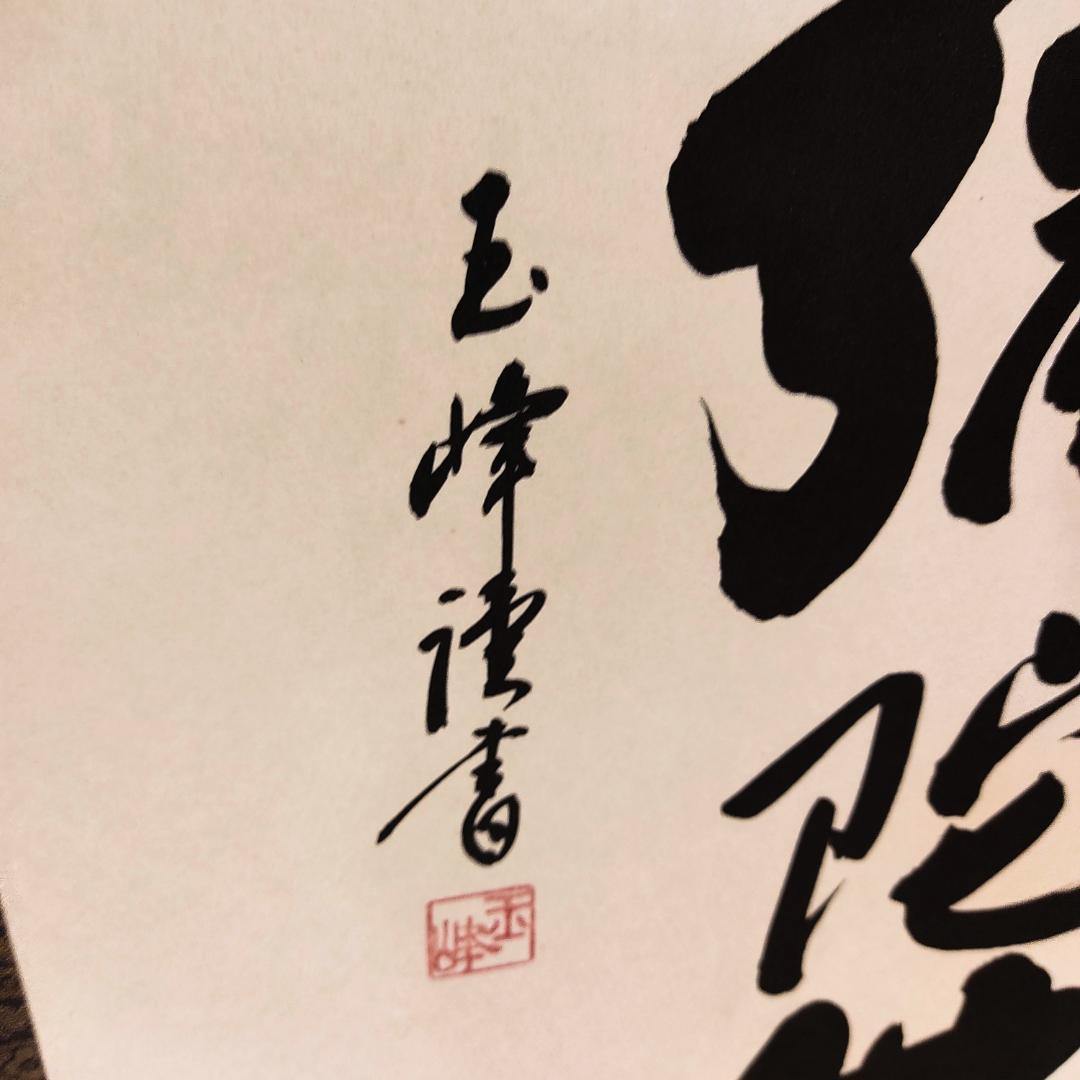 陀
玉峰謹書
玉峰